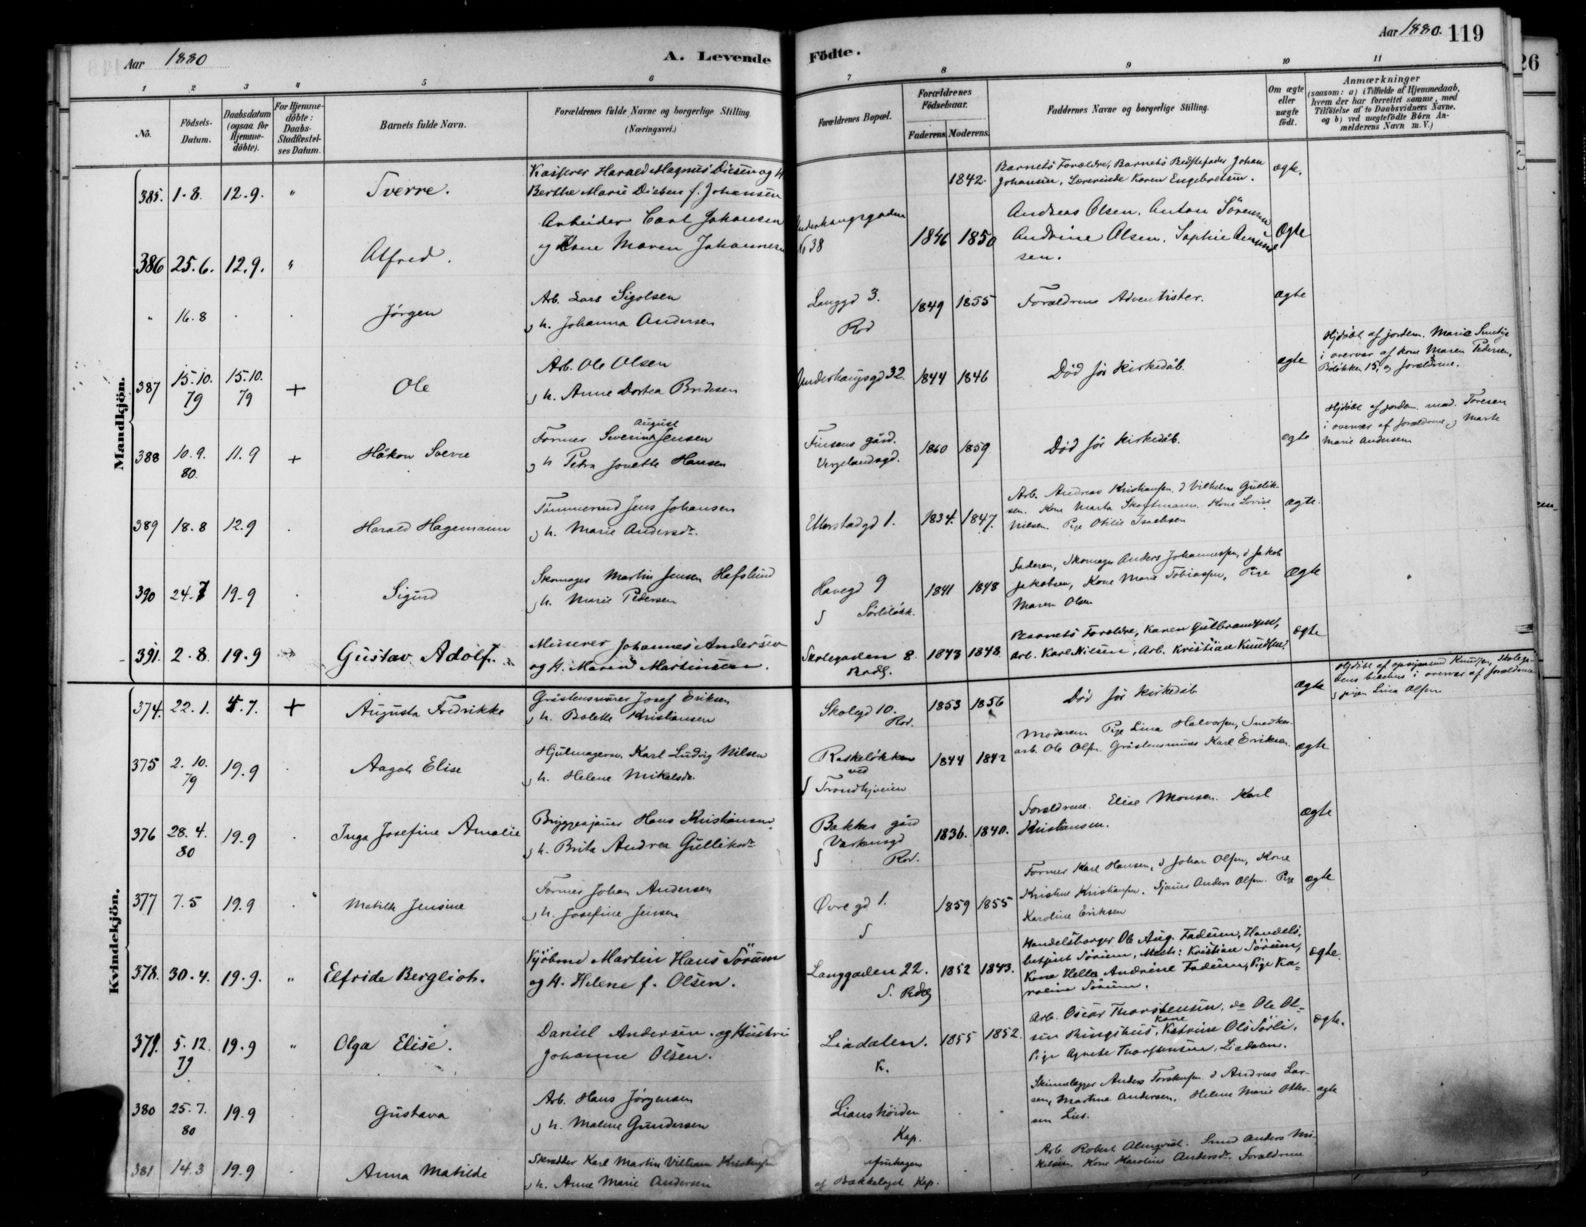 Aar 1880
A. Levende
Födte.
Aar 1880. 119
26
1 2 3 4 5 6 7 8 9 10 11
No.
Födsels-
Datum.
Daabsdatum
(ogsaa for
Hjemme-
döbte).
For Hjemme-
döbte:
Daabs-
Stadfæstel-
ses Datum.
Barnets fulde Navn.
Forældrenes fulde Navne og borgerlige Stilling
(Næringsvei.)
Forældrenes Bopæl.
Forældrenes
Födselsaar.
Faderens. Moderens.
Faddernes Navne og borgerlige Stilling.
Om ægte
eller
uægte
födt.
Anmærkninger
(saasom: a) i Tilfælde af Hjemmedaab,
hvem der har forrettet samme, med
Tilföielse af to Daabsvidners Navne.
og b) ved uægtefödte Börn An-
melderens Navn m. V.)
Mandkjön.
385. 1-8. 12.9. " Sverre.
Kasserer Harald Magnus Diesen og H
Berthe Marie Diesen f. Johansen
1842.
Barnets Forældre, Barnets Bedstefader Johan
Johansen, Lærerinde Karen Engebretsen.
ægte.
386 25.6. 12.9. " Alfred.
Arbeider Carl Johansen
og Kone Maren Johannesen
Underhaugsgaden
No 38
1846 1850
Andreas Olsen. Anton Sörensen
Andrine Olsen. Sophie Amund
sen.
Ægte
" 16.8 Jörgen
Arb. Lars Sigolsen
og h. Johanna Andersen
Langgd 3.
Rod
1849 1855
Forældrene Adventister.
ægte
387 15.10. 79 15.10. 79 + Ole
Arb. Ole Olsen
og h. Anne Dortea Bredesen
Underhaugsgd 32.
1844 1846
Död för Kirkedåb.
ægte
Hjdöbt af jordem. Marie
i overvær af kone Maren Pedersen,
Bolökken 15, og forældrene.
388 10.9. 80. 11.9 + Håkon Sverre
Former Severin August Jensen
og h Petra Josette Hansen
Finsens gård.
Vergelandsgd.
1860 1859
Död för Kirkedåb.
ægte
Hjdöbt af jordem. mad. Toresen
i overvær af forældrene, og Marte
Marie Andersen
389 18.8 12.9 Harald Hagemann
Tömmermd Jens Johansen
og h. Marie Andersdr.
Ullerstadgd 1.
1834. 1847.
Arb. Andreas Kristiansen, d Vilhelm Gullik-
sen. Kone Marta Skoftmann. Kone Lovise
Nilsen. Pige Otilie Isachsen
ægte.
390 24.7 19.9 Sigurd
Skomager Martin Jensen Hafslund
og h. Marie Pedersen
Havegd 9
Sörliløkk.
1841 1848
Faderen, Skomager Anders Johannessen, d Jakob
Jakobsen, Kone Marie Tobiassen, Pige
Maren Olsen
Ægte
391. 2-8. 19.9 Gustav Adolf.
Murerer Johannes Andersen
og H. Maren Martinsen.
Skolegaden 8.
Rodl.
1843 1848.
Barnets Forældre, Karen Gulbrandsen,
Arb. Karl Nilsen, Arb. Kristian Knudsen.
ægte
Kvindekjön.
374. 22.1. 5.7. + Augusta Fredrikke
Gråstensmurer Josef Eriksen
og h. Bolette Kristiansen
Skolegd 10.
Rod.
1853 1856
Död för Kirkedåb
ægte
Hjdöbt af opsynsmd Knudsen, skolega-
dens i overvær af forældrene
og pigen Lina Olsen
375 2.10. 79 19.9 Aagot Elise
Hjulmagersv. Karl Ludvig Nilsen
og h. Helene Mikelsdr.
Raskeløkken
ved
Trondhjveien
1844 1842
Moderen. Pige Lina Halvorsen, Snedker
arb. Ole Olsen. Gråstensmurer Karl Eriksen.
ægte
376 28.4. 80 19.9 Inga Josefine Amalie
Bryggesjauer Hans Kristiansen
og h. Brita Andrea Gulliksdr.
Bakkes gård
Rod.
1836. 1840.
Forældrene. Elise Monsen. Karl
Kristiansen.
ægte
377 7.5 19.9 Matilde Jensine
Former Johan Andersen
og h. Josefine Jensen
Övre gd 1.
1859 1855
Former Karl Hansen, d Johan Olsen, Kone
Kristine Kristiansen. Sjauer Anders Olsen. Pige
Karoline Eriksen
ægte
378. 30.4. 19.9. " Elfride Bergliot.
Kjöbmd Martin Hans Sörum
og H. Helene f. Olsen.
Langgaden 22.
1852 1843.
Handelsborger Ole Aug. Fadum, Handels-
betjent Sörum, Kristian Sörum,
Kone Helle Andrine Fadum, Pige Ka-
roline Sörum.
ægte.
379. 5.12. 79 19.9 " Olga Elise.
Daniel Andersen og Hustru
Johanne Olsen.
Liadalen.
K.
1855 1852.
Arb. Oscar Thorstensen, do Ole Ol-
sen Ringshus, Kone Katrine Ols Sörli.
Pige Agnete Thorstensen, Liadalen.
ægte.
380 25.7. 80 19.9 Gustava
Arb. Hans Jörgensen
og h. Malene Gundersen
Lianshöiden
Kap.
Skinnelægger Anders Torstensen d Andreas Lar-
sen, Martine Andersen, Helene Marie Otter-
sen Lies.
ægte
381 14.3 19.9 Anna Matilde
Skredder Karl Martin Villiam Kristiansen
og h. Anne Marie Andersen
af Bækkelaget Kap.
Arb. Robert Almqvist. Smed Anders Mi-
kelsen. Kone Karoline Andersdr. Forældrene